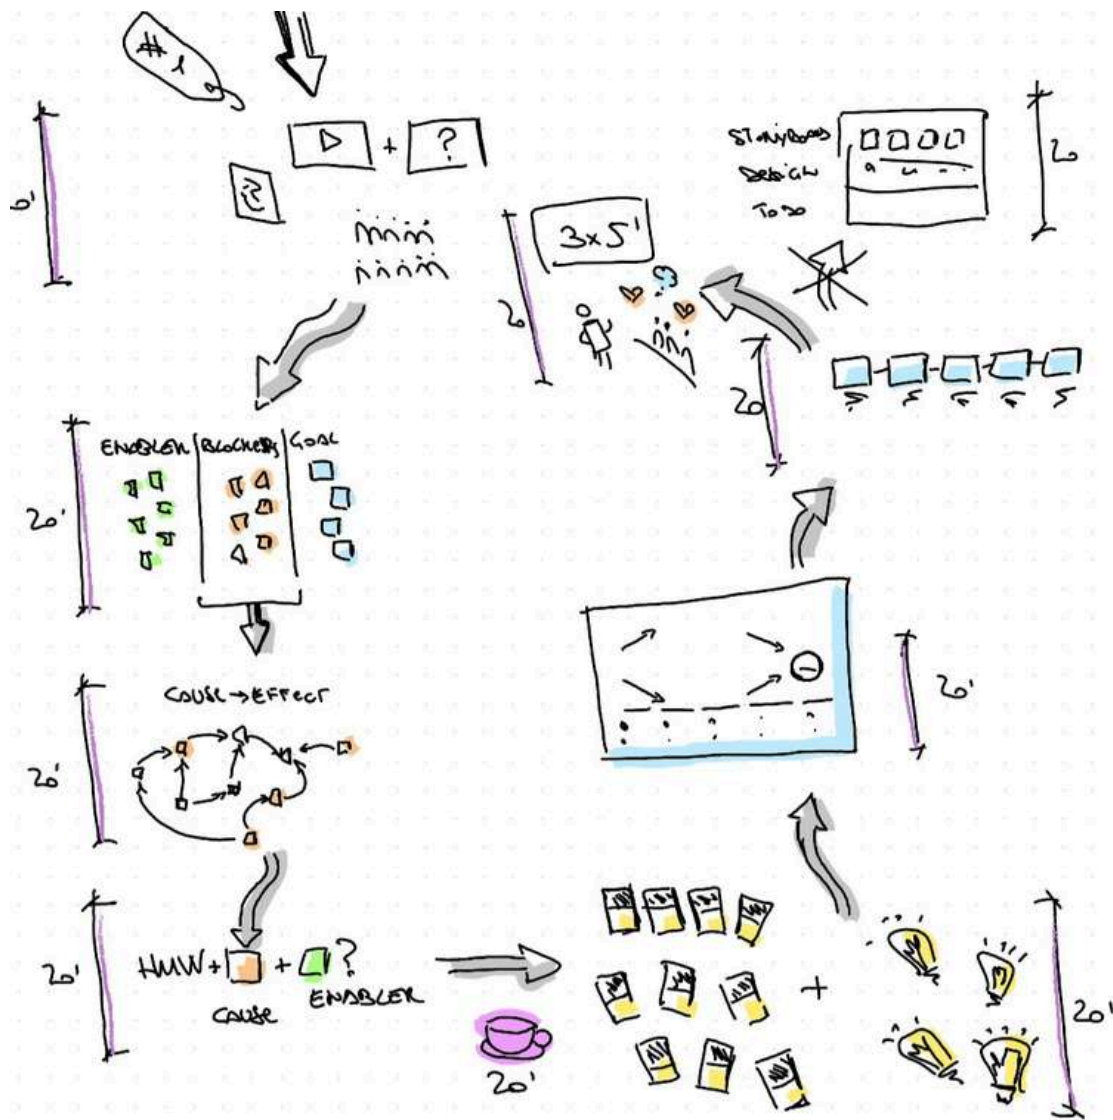 # 1
?
6'
3x5'
20
STORYBOARD
DESIGN
TO DO
20
ENABLER
BLOCKERS
GOAL
20'
20
CAUSE → EFFECT
20'
20'
HMW + + ?
CAUSE
ENABLER
20'
20'
+
20'